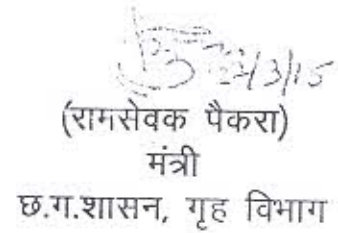 27/3/15
(रामसेवक पैकरा)
मंत्री
छ.ग.शासन, गृह विभाग